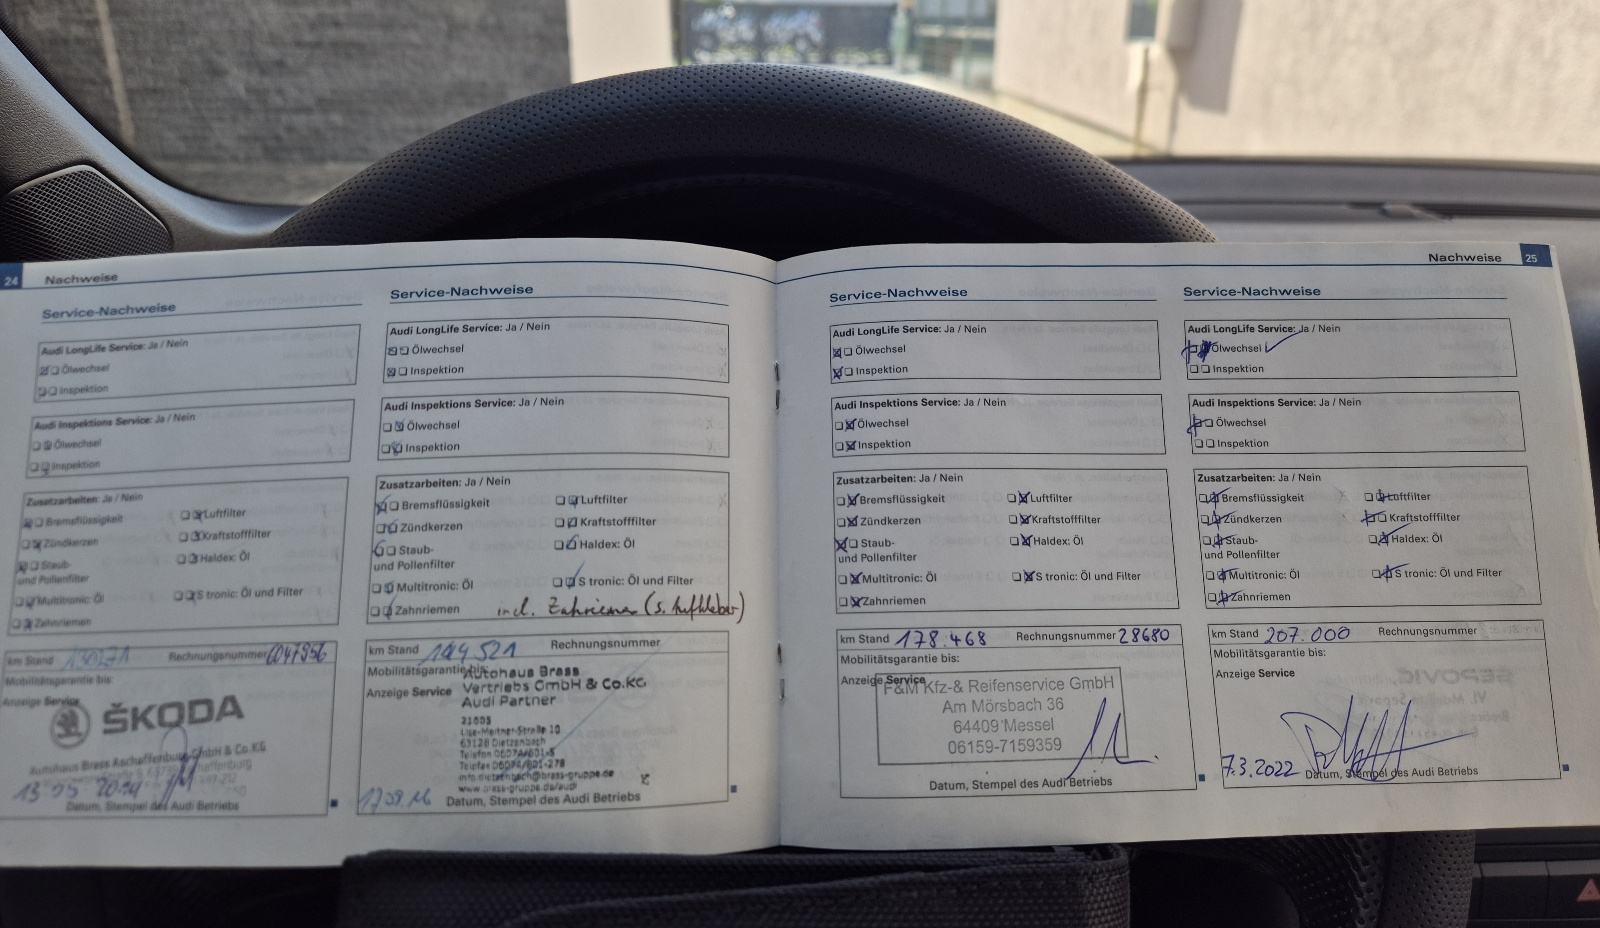 24 Nachweise
Service-Nachweise
Audi LongLife Service: Ja / Nein
Ölwechsel
Inspektion
Audi Inspektions Service: Ja / Nein
Ölwechsel
Inspektion
Zusatzarbeiten: Ja / Nein
Bremsflüssigkeit Luftfilter
Zündkerzen Kraftstofffilter
Staub- Haldex: Öl
und Pollenfilter
Multitronic: Öl S tronic: Öl und Filter
Zahnriemen
km Stand Rechnungsnummer
Mobilitätsgarantie bis:
Anzeige Service
ŠKODA
Autohaus Brass Aschaffenburg GmbH & Co. KG
Datum, Stempel des Audi Betriebs
Service-Nachweise
Audi LongLife Service: Ja / Nein
Ölwechsel
Inspektion
Audi Inspektions Service: Ja / Nein
Ölwechsel
Inspektion
Zusatzarbeiten: Ja / Nein
Bremsflüssigkeit Luftfilter
Zündkerzen Kraftstofffilter
Staub- Haldex: Öl
und Pollenfilter
Multitronic: Öl S tronic: Öl und Filter
Zahnriemen incl. Zahnriemen (s. Aufkleber)
km Stand Rechnungsnummer
Mobilitätsgarantie bis:
Autohaus Brass
Anzeige Service Vertriebs GmbH & Co.KG
Audi Partner
Lise-Meitner-Straße 10
63128 Dietzenbach
Telefon 06074/801-5
Telefax 06074/801-278
info.dietzenbach@brass-gruppe.de
www.brass-gruppe.de/audi
Datum, Stempel des Audi Betriebs
Nachweise 25
Service-Nachweise
Audi LongLife Service: Ja / Nein
Ölwechsel
Inspektion
Audi Inspektions Service: Ja / Nein
Ölwechsel
Inspektion
Zusatzarbeiten: Ja / Nein
Bremsflüssigkeit Luftfilter
Zündkerzen Kraftstofffilter
Staub- Haldex: Öl
und Pollenfilter
Multitronic: Öl S tronic: Öl und Filter
Zahnriemen
km Stand 178.468 Rechnungsnummer 28680
Mobilitätsgarantie bis:
Anzeige Service
F&M Kfz-& Reifenservice GmbH
Am Mörsbach 36
64409 Messel
06159-7159359
Datum, Stempel des Audi Betriebs
Service-Nachweise
Audi LongLife Service: Ja / Nein
Ölwechsel
Inspektion
Audi Inspektions Service: Ja / Nein
Ölwechsel
Inspektion
Zusatzarbeiten: Ja / Nein
Bremsflüssigkeit Luftfilter
Zündkerzen Kraftstofffilter
Staub- Haldex: Öl
und Pollenfilter
Multitronic: Öl S tronic: Öl und Filter
Zahnriemen
km Stand 207.000 Rechnungsnummer
Mobilitätsgarantie bis:
Anzeige Service
7.3.2022 Datum, Stempel des Audi Betriebs